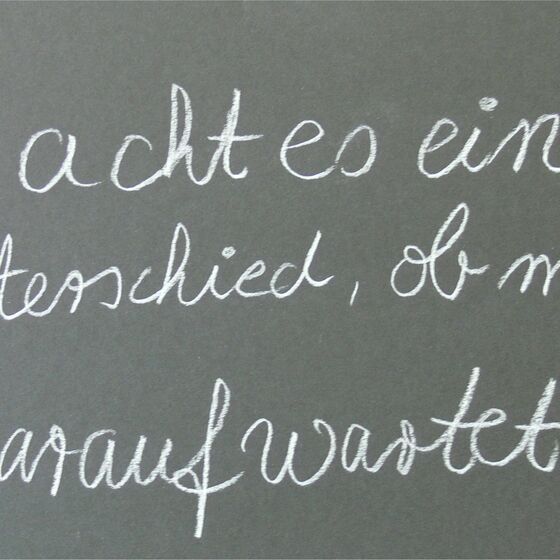 acht es ein
terschied, ob m
arauf wartet